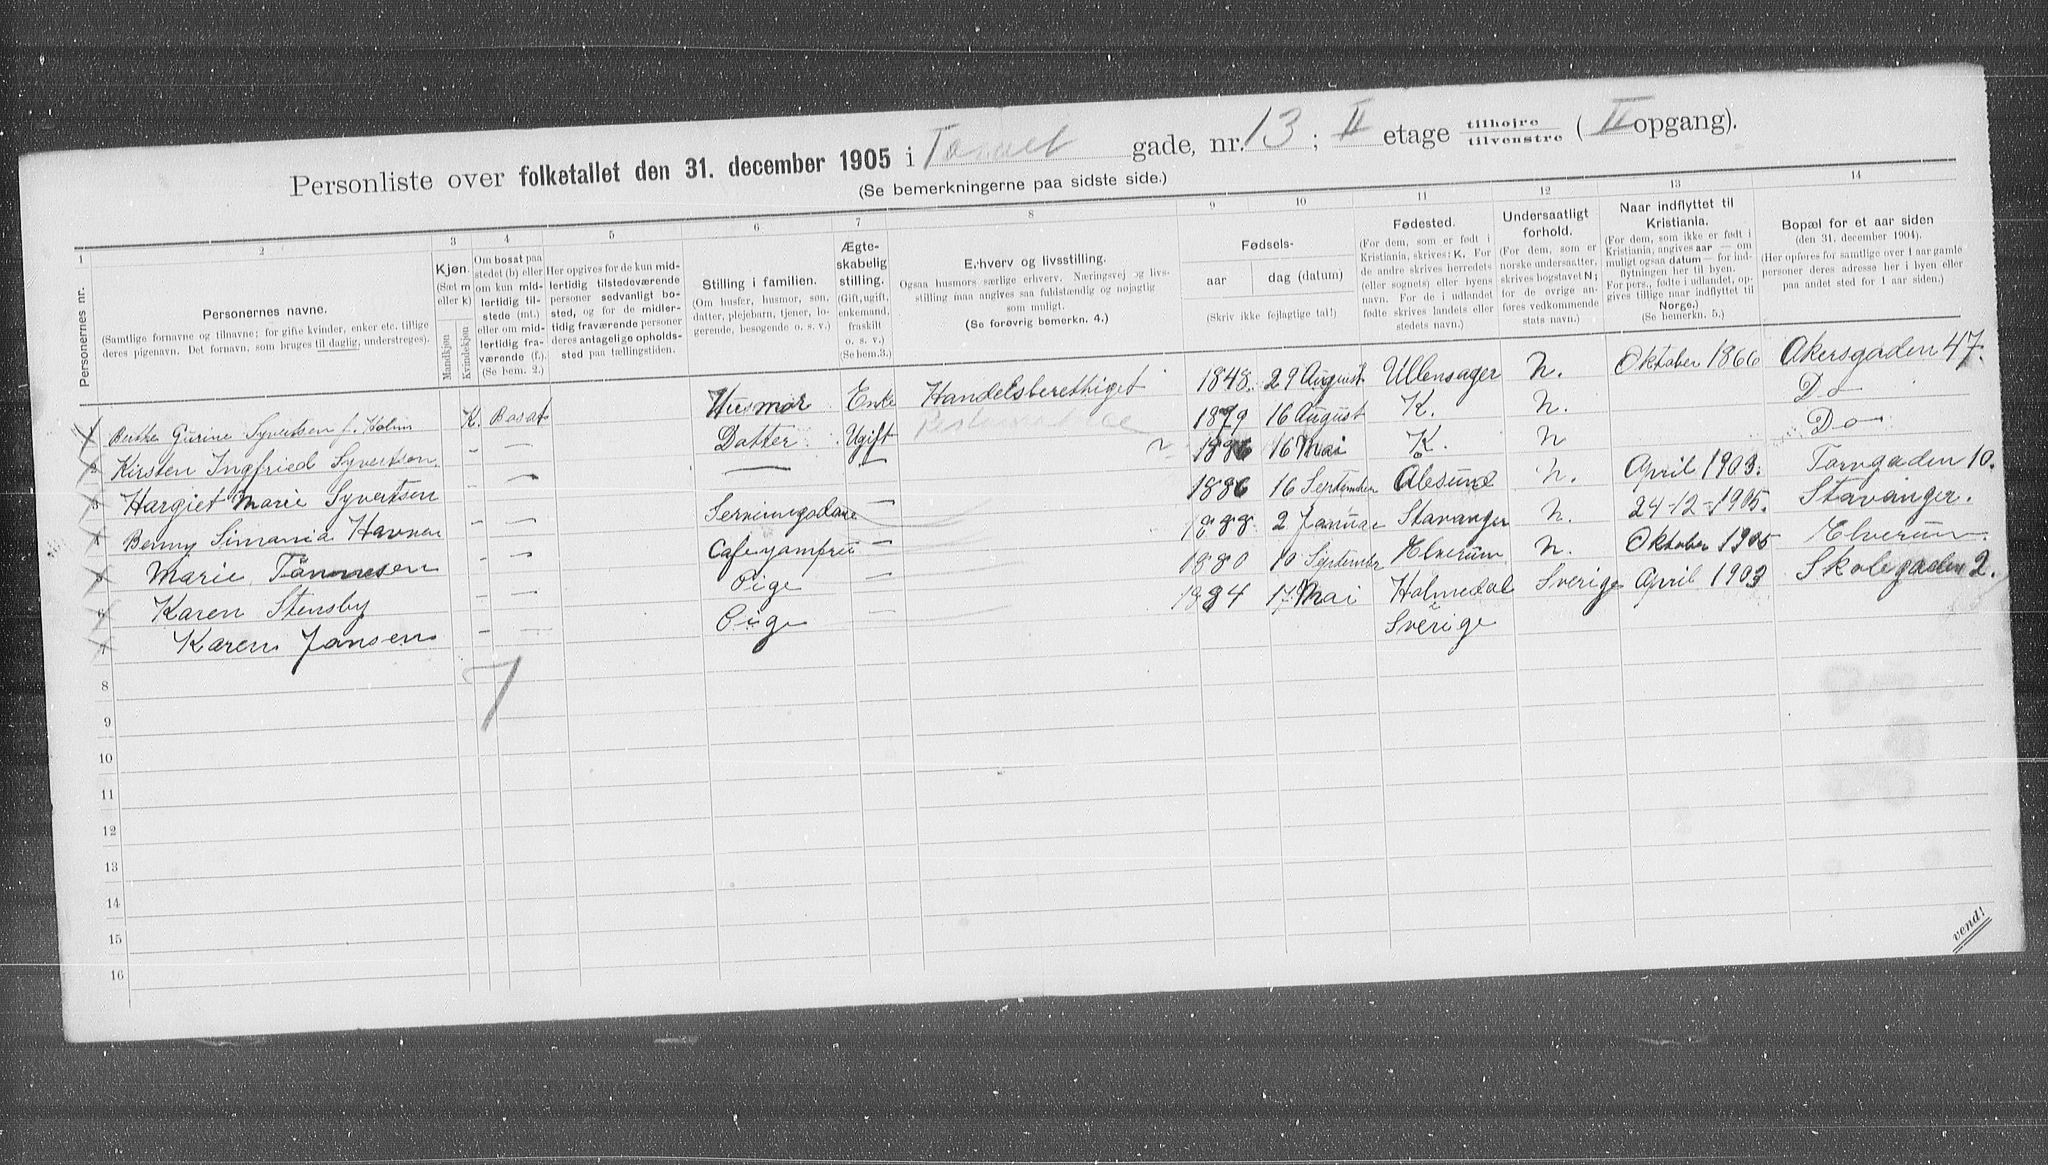 Personliste over folketallet den 31. december 1905 i Torvet gade, nr. 13 ; II etage tilhøjre tilvenstre ( II opgang).
(Se bemerkningerne paa sidste side.)
1 2 3 4 5 6 7 8 9 10 11 12 13 14
Personernes nr.
Personernes navne.
(Samtlige fornavne og tilnavne; for gifte kvinder, enker etc. tillige
deres pigenavn. Det fornavn, som bruges til daglig, understreges).
Kjøn.
(Sæt m
eller k)
Mandkjøn
Kvindekjøn
Om bosat paa
stedet (b) eller
om kun mid-
lertidig til-
stede (mt.)
eller om mid-
lertidig fra-
værende (f.)
(Se bem. 2.)
Her opgives for de kun mid-
lertidig tilstedeværende
personer sedvanligt bo-
sted, og for de midler-
tidig fraværende personer
deres antagelige opholds-
sted paa tællingstiden.
Stilling i familien.
(Om husfer, husmor, søn,
datter, plejebarn, tjener, lo-
gerende, besøgende o. s. v.)
Ægte-
skabelig
stilling.
(Gift, ugift,
enkemand,
fraskilt
o. s. v.)
(Se bem. 3.)
Erhverv og livsstilling.
Ogsaa husmors særlige erhverv. Næringsvej og livs-
stilling maa angives saa fuldstændig og nøjagtig
som muligt.
(Se forøvrig bemerkn. 4.)
Fødsels-
aar dag (datum)
(Skriv ikke fejlagtige tal!)
Fødested.
(For dem, som er født i
Kristiania, skrives: K. For
de andre skrives herredets
(eller sognets) eller byens
navn. For de i udlandet
fødte skrives landets eller
stedets navn.)
Undersaatligt
forhold.
(For dem, som er
norske undersaatter,
skrives bogstavet N;
for de øvrige an-
føres vedkommende
stats navn.)
Naar indflyttet til
Kristiania.
(For dem, som ikke er født i
Kristiania, angives aar — om
muligt ogsaa datum — for ind-
flytningen her til byen.
For pers., fødte i udlandet, op-
gives tillige naar indflyttet til
Norge.)
(Se bemerkn. 5.)
Bopæl for et aar siden
(den 31. december 1904).
(Her opføres for samtlige over 1 aar gamle
personer deres adresse her i byen eller
paa andet sted for 1 aar siden.)
1 Berthe Gurine Syvertsen f. Holm K. Bosat Husmor Enke Handelsberettiget 1848. 29 August Ullensager N. Oktober 1866 Akersgaden 47.
2 Kirsten Ingfried Syvertsen - - Datter Ugift 1879 16 August K. N. Do
3 Hargiet Marie Syvertsen - - — — 1886 16 Mai K. N Do
4 Benny Simania Havnen - - Serveringsdame — 1886 16 September Aalesund N. April 1903. Torvgaden 10.
5 Marie Tannesen - - Cafejomfru — 1888 2 Januar Stavanger N. 24-12-1905. Stavanger.
6 Karen Stensby - - Pige — 1880 10 September Elverum N. Oktober 1905 Elverum.
7 Karen Jansen - - Pige — 1884 17 Mai Holmedal Sverige April 1903 Skolegaden 2.
Sverige
7
8
9
10
11
12
13
14
15
16
vend!